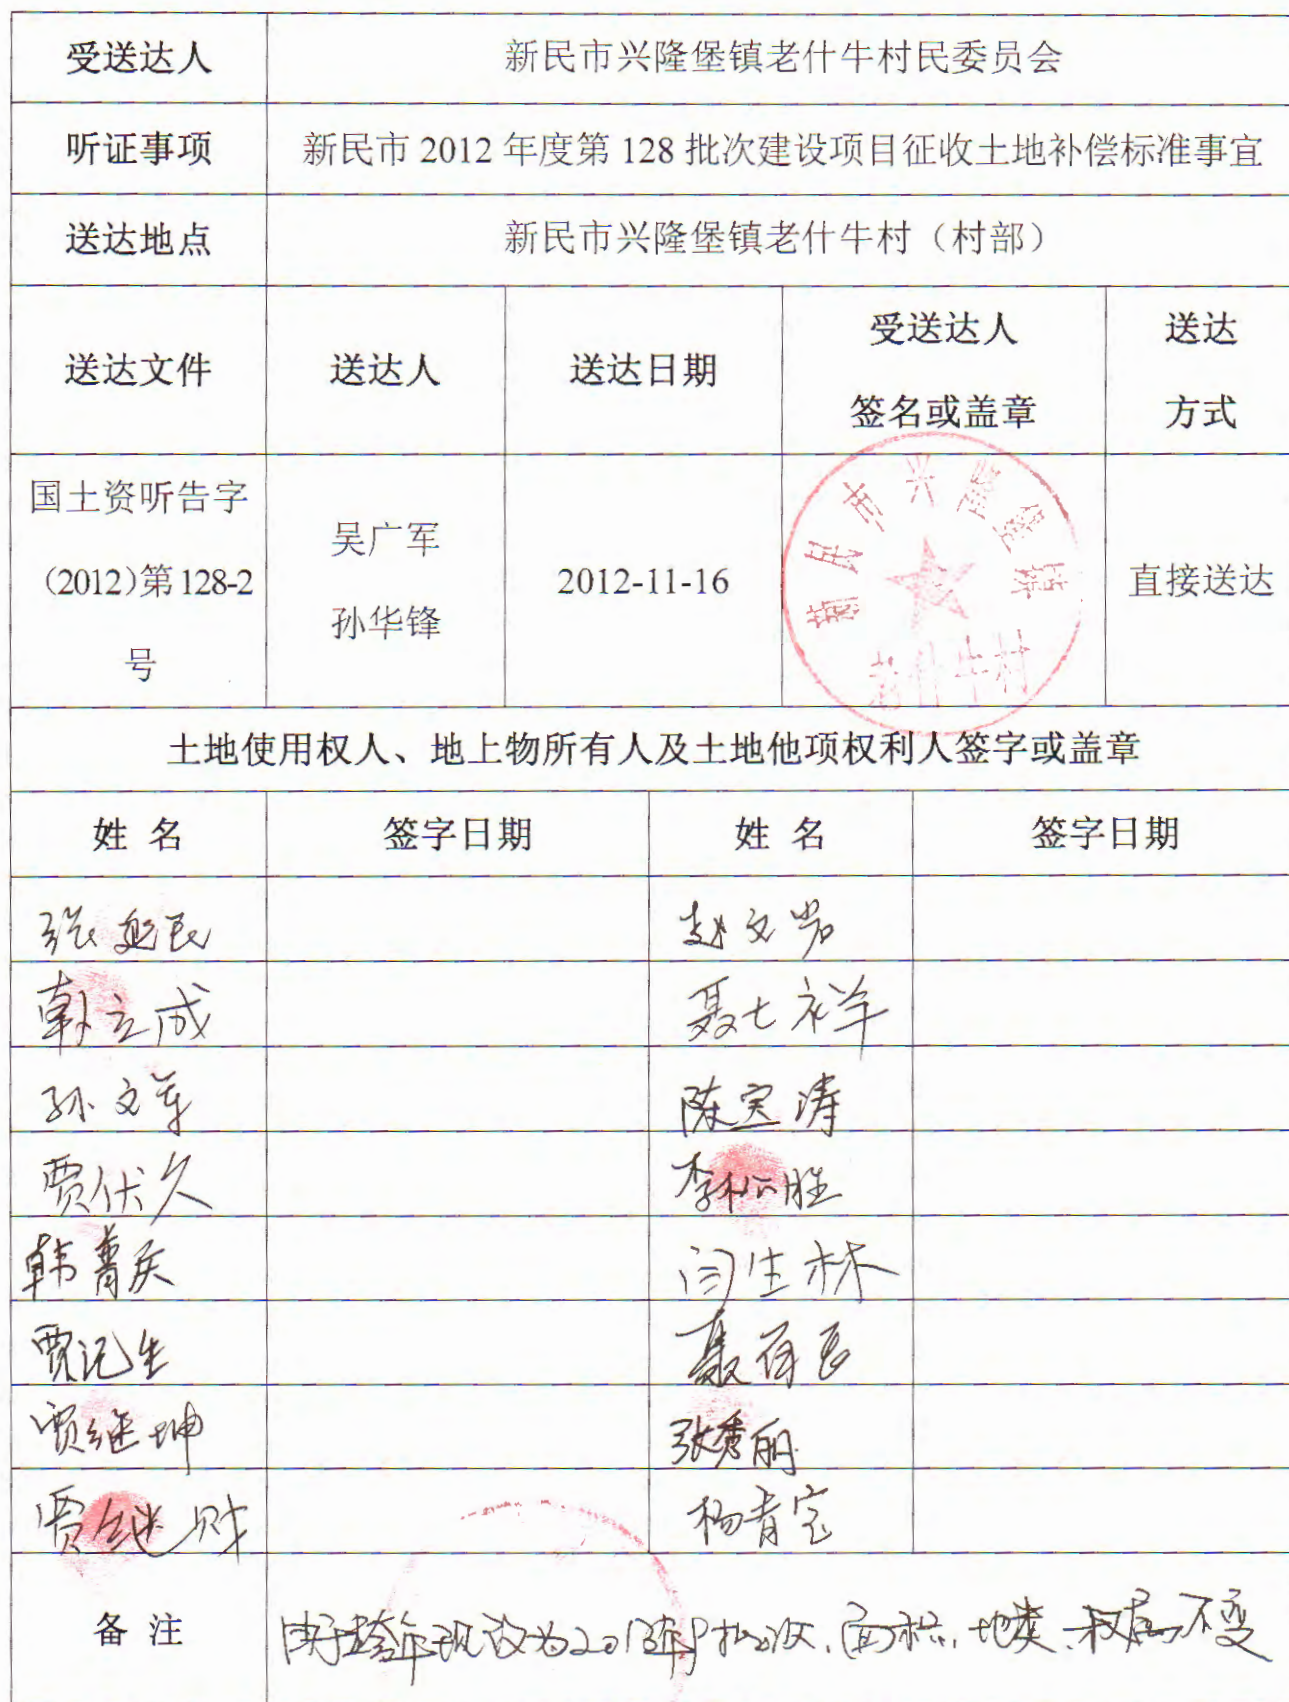 受送达人 新民市兴隆堡镇老什牛村民委员会
听证事项 新民市 2012 年度第 128 批次建设项目征收土地补偿标准事宜
送达地点 新民市兴隆堡镇老什牛村（村部）
送达文件 送达人 送达日期 受送达人 签名或盖章 送达 方式
国土资听告字
（2012）第 128-2
号
吴广军
孙华锋
2012-11-16
新民市兴隆堡镇
老什牛村
直接送达
土地使用权人、地上物所有人及土地他项权利人签字或盖章
姓 名 签字日期 姓 名 签字日期
张 民 赵文
韩立成 聂七祥
孙文军 陈宝涛
贾伏久 李松胜
韩 庆 闫生林
贾记生 聂 
贾继坤 张秀丽
贾继财 杨青宝
备 注 由于跨年现改为2013年 批次，面积、地类、权属不变